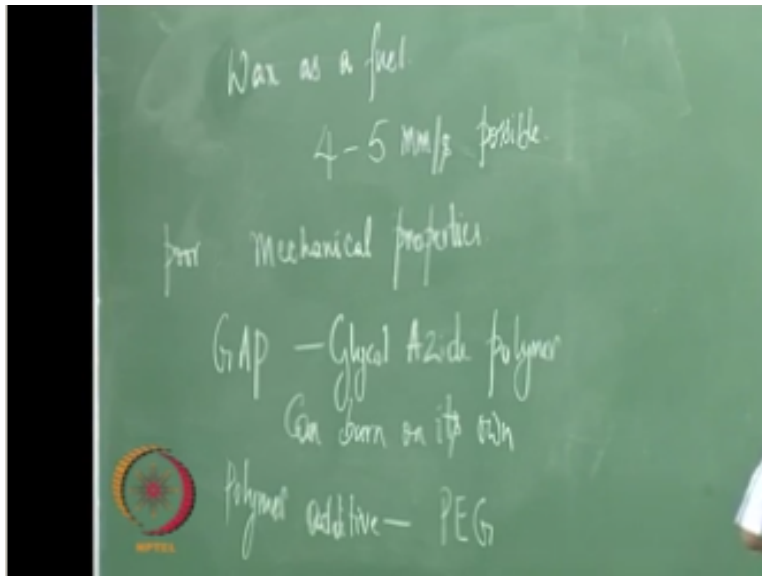 Wax as a fuel.
4-5 mm/s possible.
poor Mechanical properties
GAP — Glycol Azide polymer
Can burn on its own
Polymer additive — PEG
NPTEL